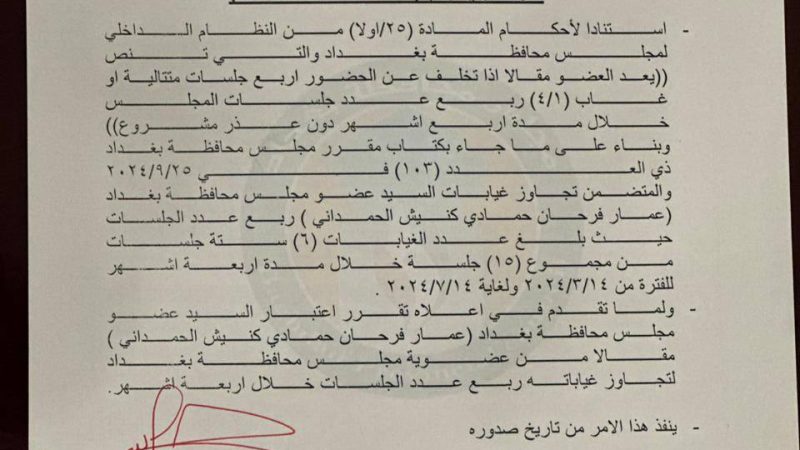 - استنادا لأحكام المادة (٢٥/اولا) من النظام الداخلي
لمجلس محافظة بغداد والتي تنص
((يعد العضو مقالا اذا تخلف عن الحضور اربع جلسات متتالية او
غاب (٤/١) ربع عدد جلسات المجلس
خلال مدة اربع اشهر دون عذر مشروع))
وبناء على ما جاء بكتاب مقرر مجلس محافظة بغداد
ذي العدد (١٠٣) في ٢٠٢٤/٩/٢٥
والمتضمن تجاوز غيابات السيد عضو مجلس محافظة بغداد
(عمار فرحان حمادي كنيش الحمداني ) ربع عدد الجلسات
حيث بلغ عدد الغيابات (٦) ستة جلسات
من مجموع (١٥) جلسة خلال مدة اربعة اشهر
للفترة من ٢٠٢٤/٣/١٤ ولغاية ٢٠٢٤/٧/١٤ .
- ولما تقدم في اعلاه تقرر اعتبار السيد عضو
مجلس محافظة بغداد (عمار فرحان حمادي كنيش الحمداني )
مقالا من عضوية مجلس محافظة بغداد
لتجاوز غياباته ربع عدد الجلسات خلال اربعة اشهر.
- ينفذ هذا الامر من تاريخ صدوره